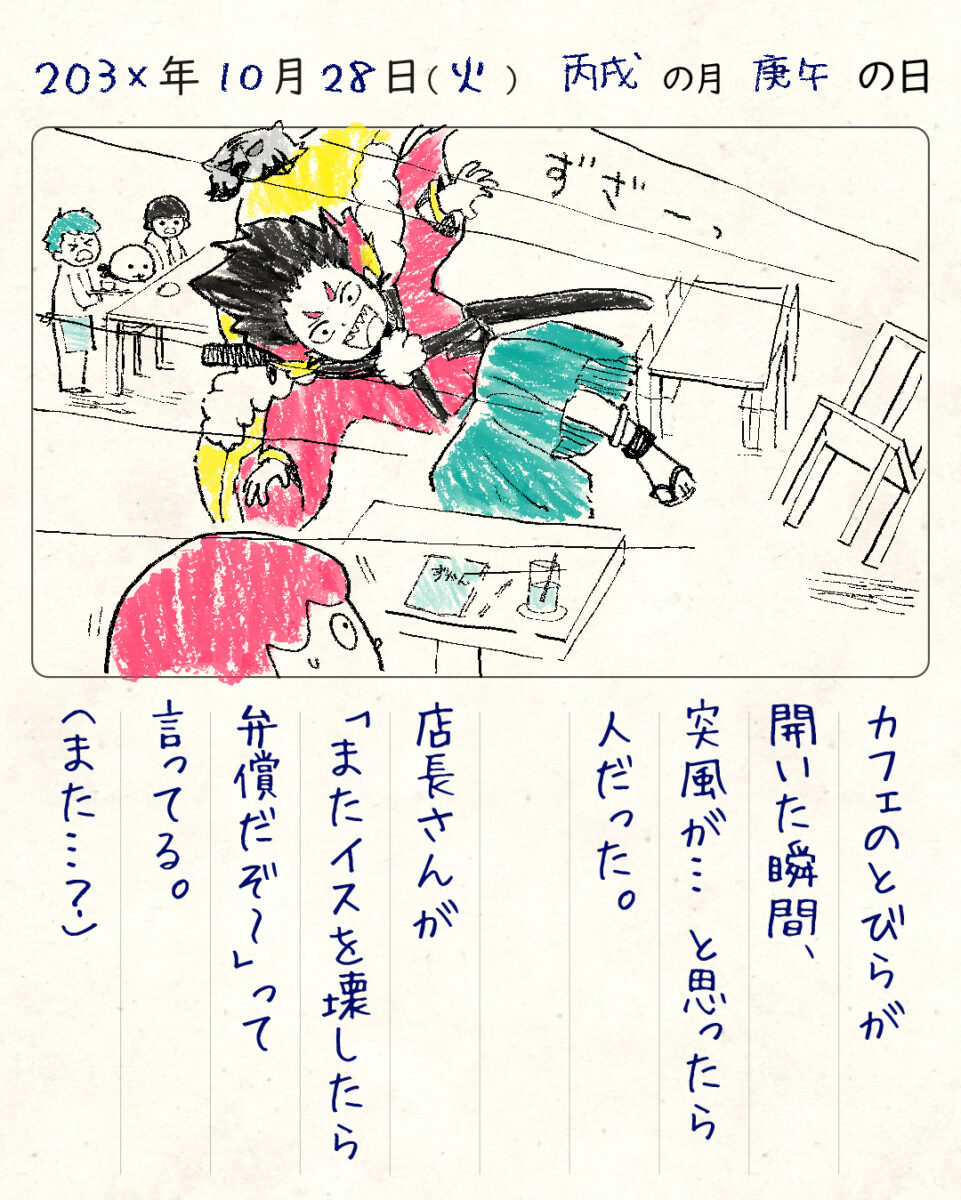 203×年10月28日（火） 丙戌の月 庚午の日
ずざーっ
ずかん
カフェのとびらが
開いた瞬間、
突風が… と思ったら
人だった。
店長さんが
「またイスを壊したら
弁償だぞ〜」って
言ってる。
（また…？）